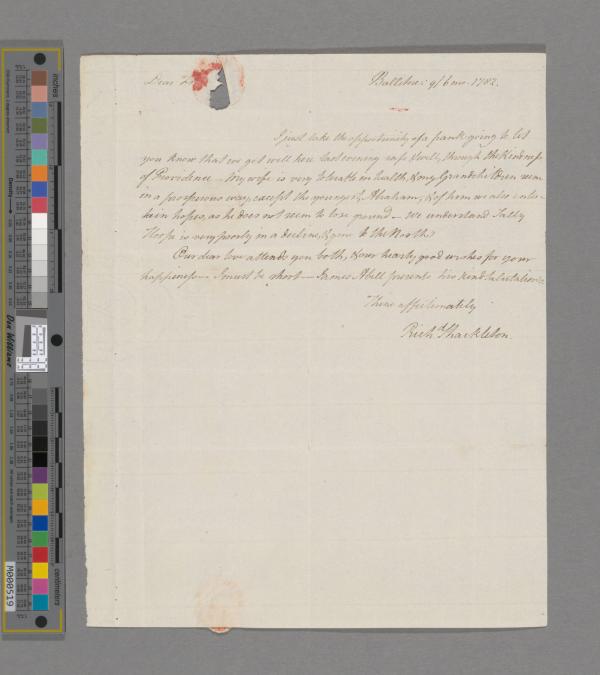 Dear
Ballitore: 9/6 mo. 1782.
I just take the opportunity of a frank going to let
you know that we got well here last evening safe & well, through the Kindness
of Providence — My wife is very tolerable in health, & my Grandchildren seem
in a prosperous way, except the youngest, Abraham, & of him we also enter-
tain hopes, as he does not seem to lose ground — We understand Sally
is very poorly in a decline, & gone to the North.
Our dear love attends you both, & our hearty good wishes for your
happiness — I must be short — Abell presents his kind Salutations
Thine affectionately
Richd Shackleton.
inches
centimeters
Density
Don Williams
M000519